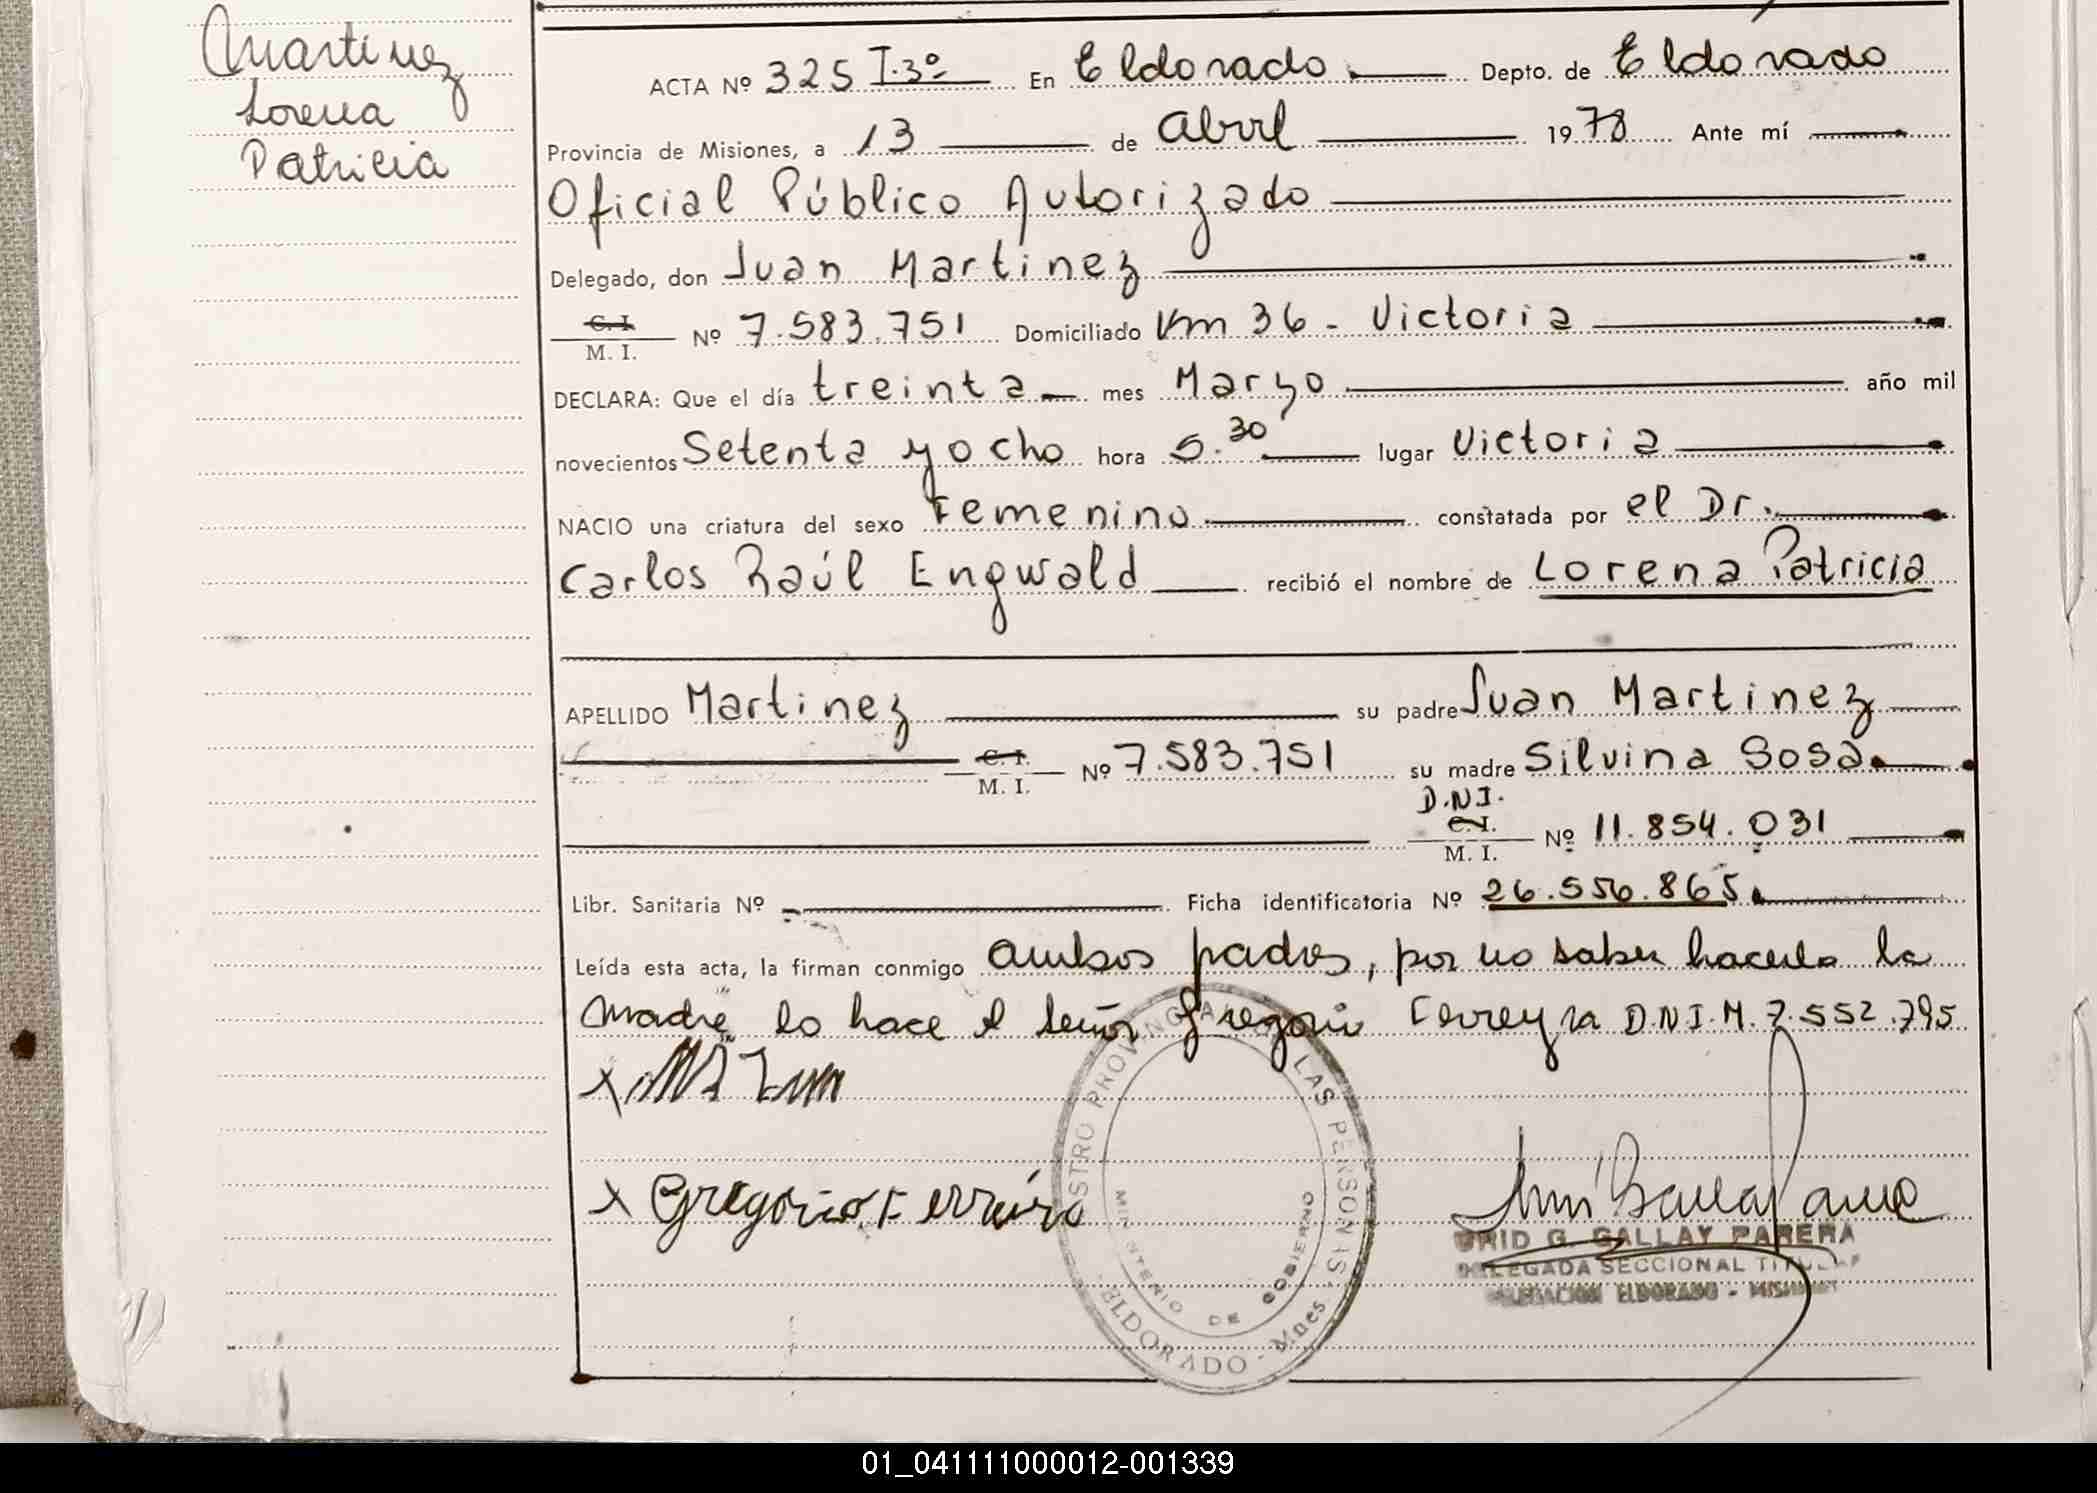 Martinez
Lorena
Patricia
ACTA Nº 325 T.3º En Eldorado Depto. de Eldorado
Provincia de Misiones, a 13 de Abril 1978 Ante mí
Oficial Público Autorizado
Delegado, don Juan Martinez
C. I. / M. I. Nº 7.583.751 Domiciliado Km 36 - Victoria
DECLARA: Que el día treinta mes Marzo año mil
novecientos Setenta y ocho hora 5.30 lugar Victoria
NACIO una criatura del sexo Femenino constatada por el Dr.
Carlos Raúl Engwald recibió el nombre de Lorena Patricia
APELLIDO Martinez su padre Juan Martinez
C. I. / M. I. Nº 7.583.751 su madre Silvina Sosa
D.N.I.
C. I. / M. I. Nº 11.854.031
Libr. Sanitaria Nº Ficha identificatoria Nº 26.556.865
Leída esta acta, la firman conmigo ambos padres, por no saber hacerlo la
madre lo hace el señor Gregorio Ferreyra D.N.I.M. 7.552.795
x
x Gregorio Ferreira
PROVINCIAL LAS PERSONAS
MINISTERIO DE GOBIERNO
ELDORADO - Mnes.
G. GALLAY PARERA
DELEGADA SECCIONAL TITULAR
DELEGACION ELDORADO - MISIONES
01_041111000012-001339